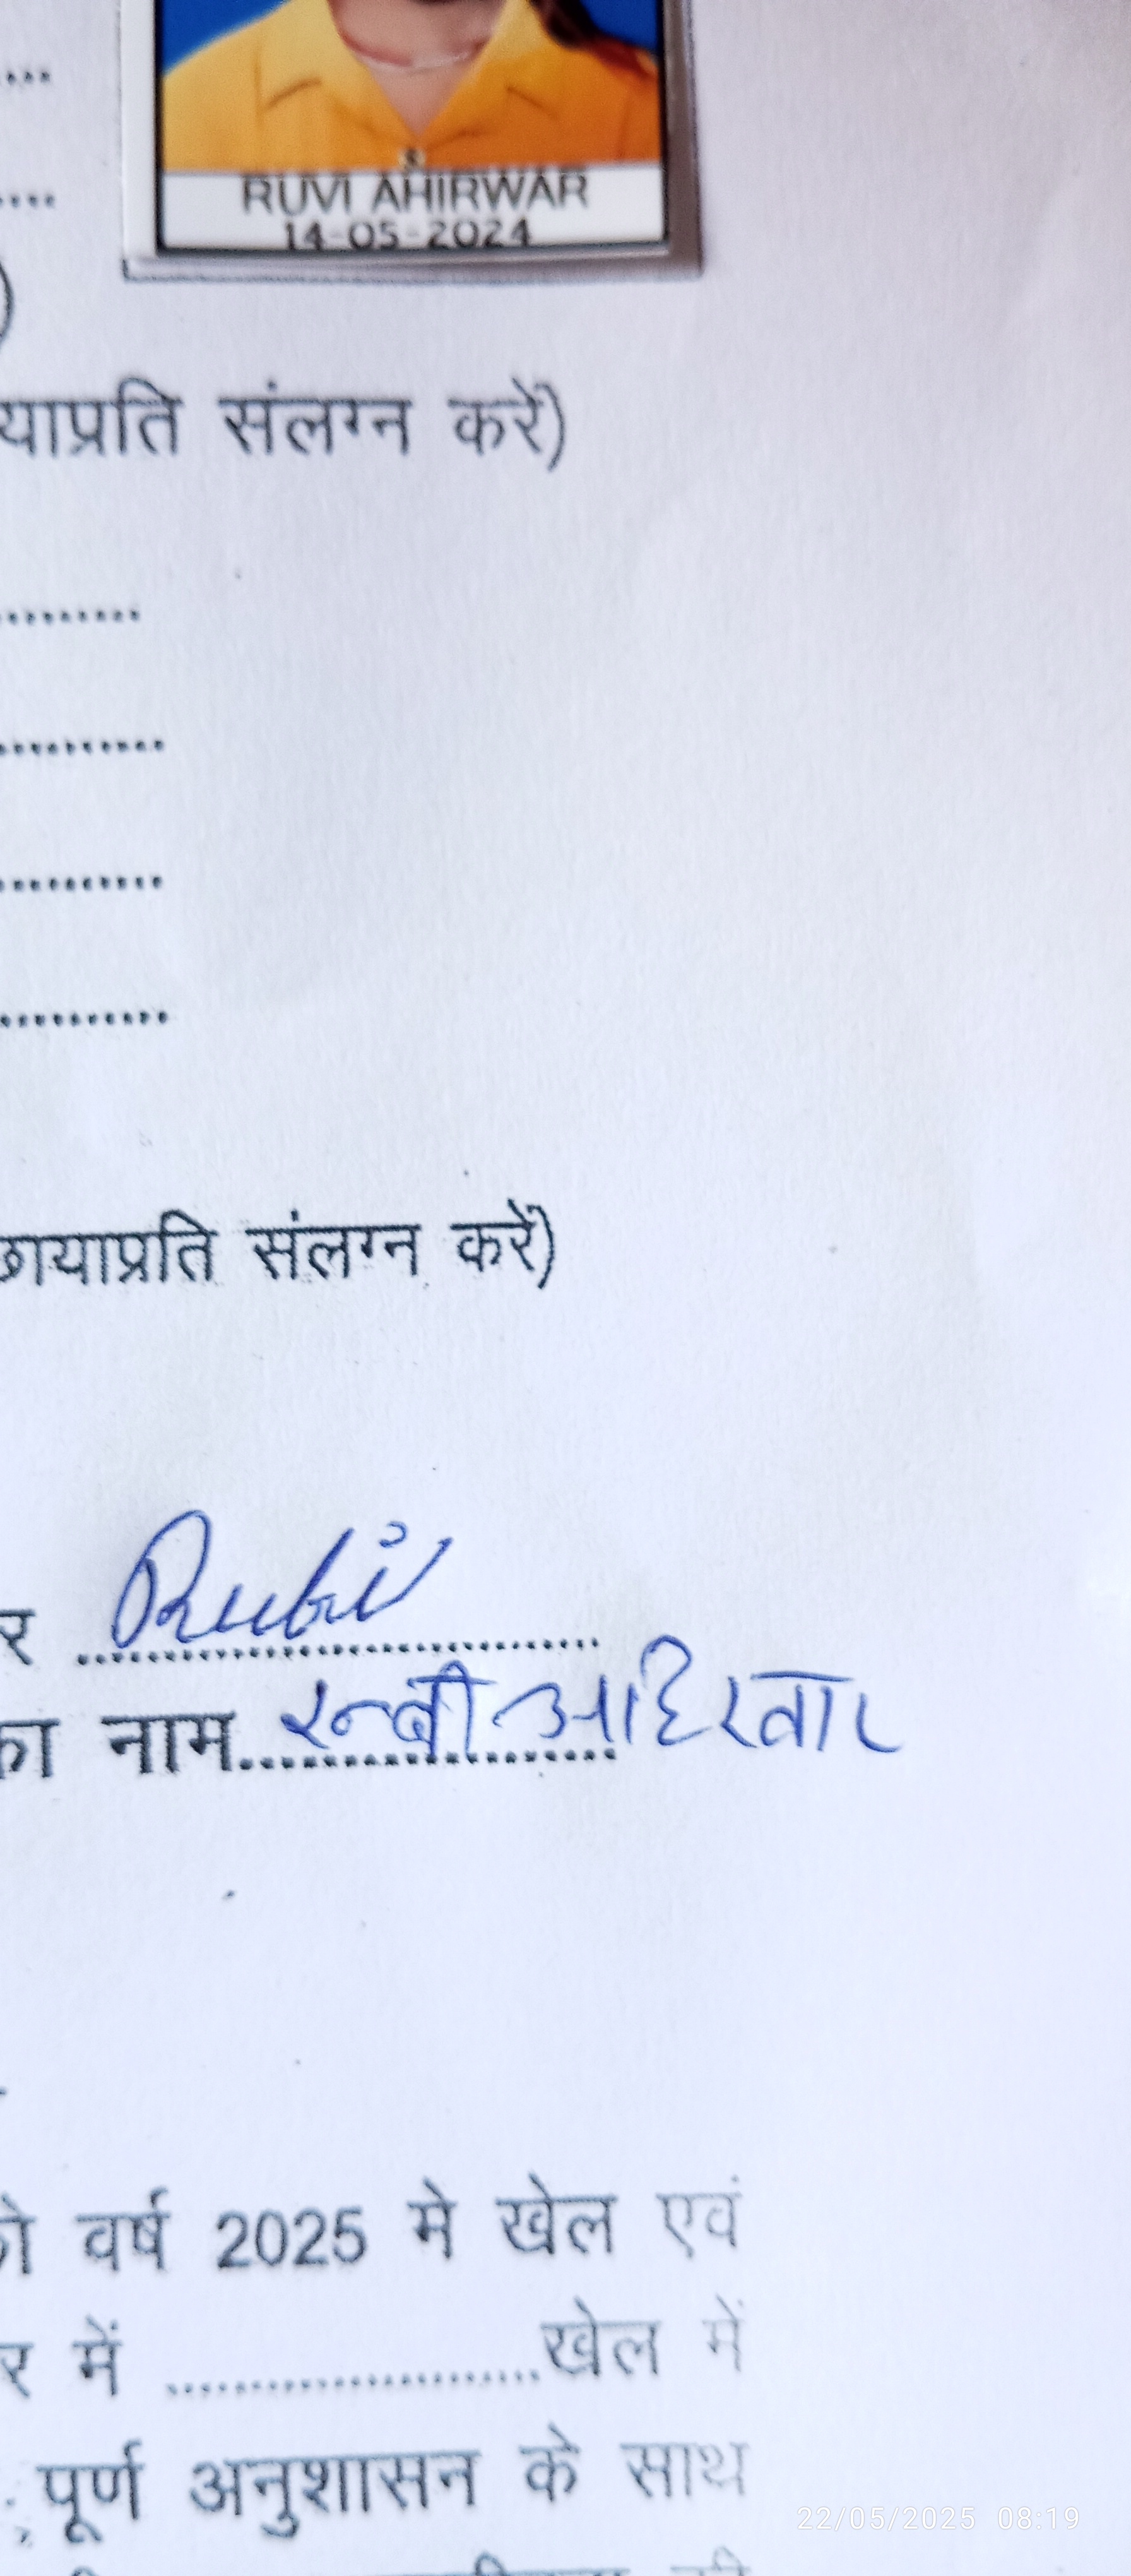 RUVI AHIRWAR
14-05-2024
)
याप्रति संलग्न करें)
छायाप्रति संलग्न करें)
र Rubi
का नाम रूबी अहिरवार
को वर्ष 2025 मे खेल एवं
र में ....................खेल में
पूर्ण अनुशासन के साथ
22/05/2025 08:19